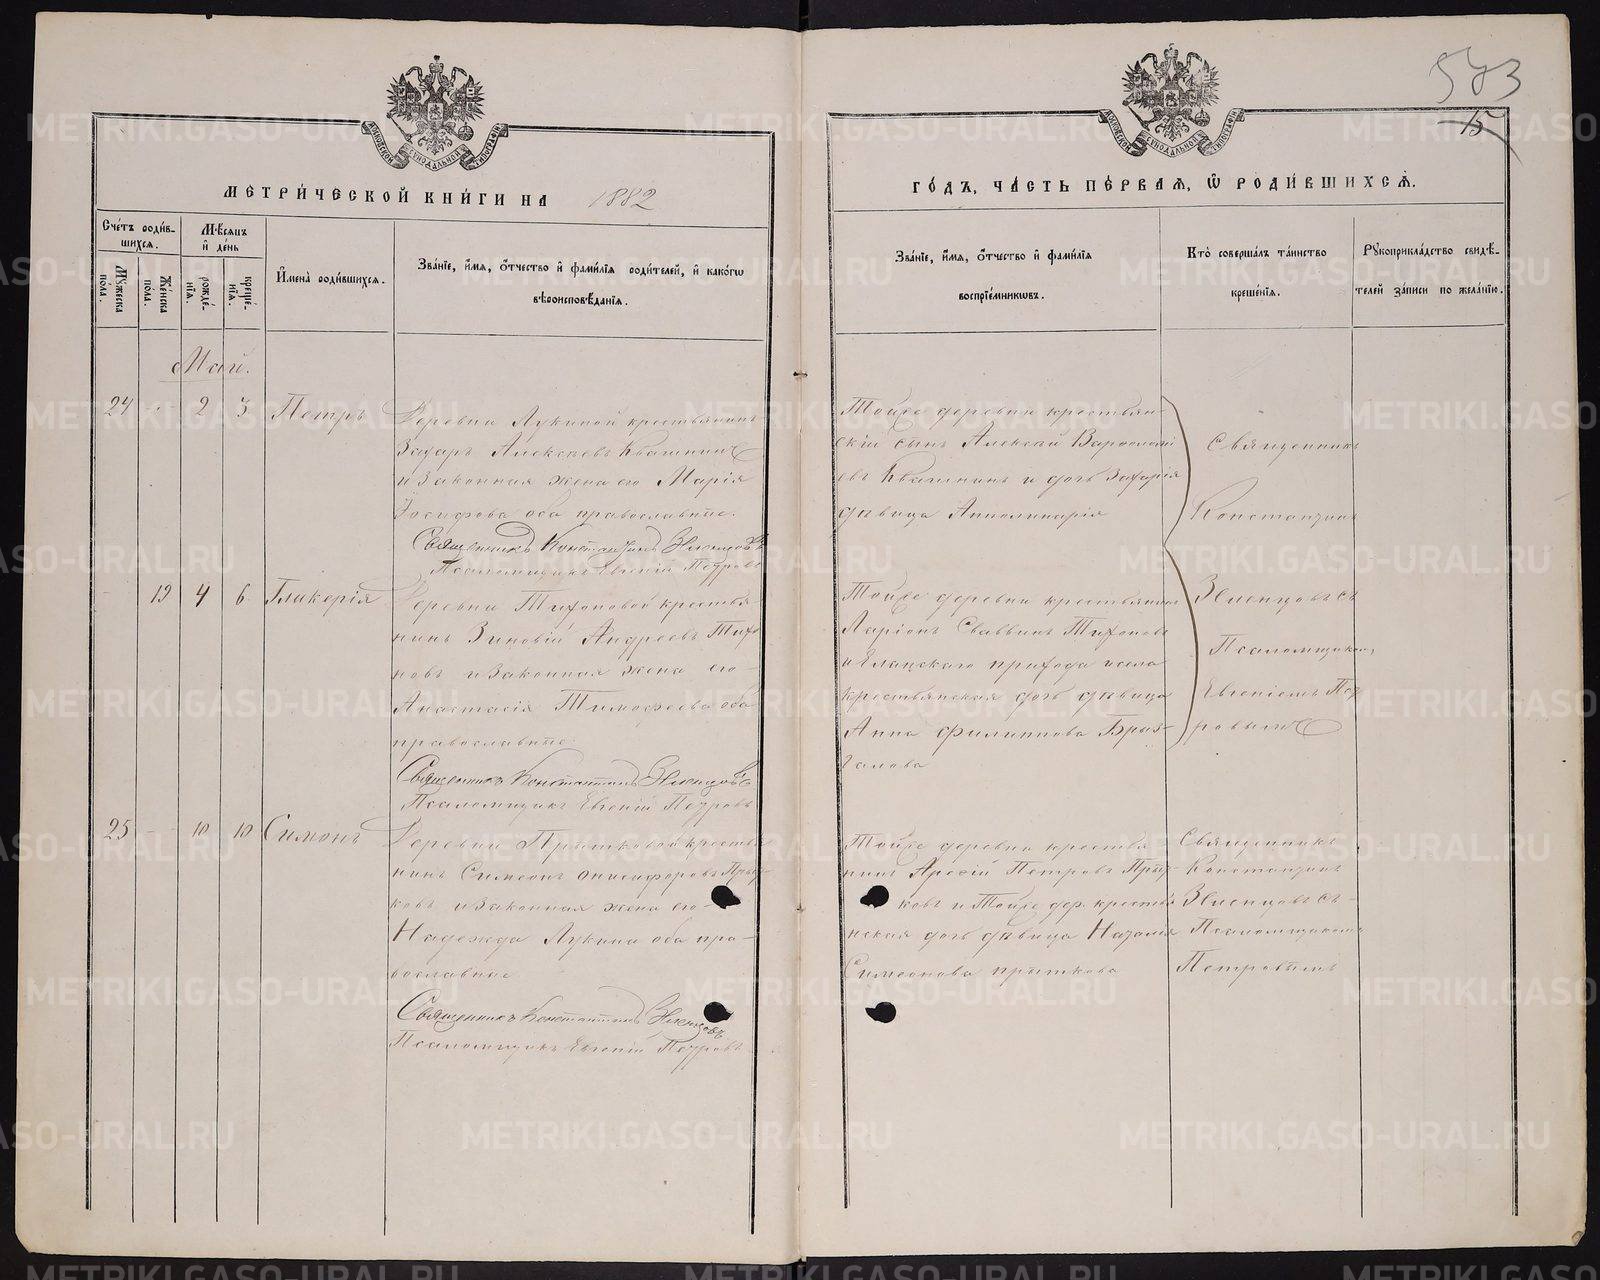 583
15
МЕТРИ́ЧЕСКОЙ КНИ́ГИ НА 1882
ГО́ДЪ, ЧА́СТЬ ПЕ́РВАЯ, Ѿ РОДИ́ВШИХСѦ.
Сче́тъ роди́в-
шихсѧ.
Мѣ́сѧцъ
и҆ де́нь
Мꙋ́жеска
по́ла.
Же́нска
по́ла.
рожде́-
нїѧ.
креще́-
нїѧ.
И҆мена̀ роди́вшихсѧ.
Зва́нїе, и҆́мѧ, ѻ҆́тчество и҆ фами́лїѧ роди́телей, и҆ како́гѡ
вѣроисповѣ́данїѧ.
Зва́нїе, и҆́мѧ, ѻ҆́тчество и҆ фами́лїѧ
воспрїе́мникѡвъ.
Кто̀ соверша́лъ та́инство
креще́нїѧ.
Рꙋкоприкла́дство свидѣ́-
телей за́писи по жела́нїю.
Май.
24 2 3 Петръ
Деревни Лукиной крестьянинъ
Захаръ Алексѣевъ Квашнинъ
и законная жена его Марія
Іосифова оба православные.
Священникъ Константинъ
Псаломщикъ Евгеній Петровъ
Тойже деревни крестьян-
скій сынъ Алексѣй
евъ Квашнинъ и дочь Захарія
дѣвица Апполинарія
Священникъ
Константинъ
Псаломщикомъ
Евгеніемъ Пет
ровымъ
19 4 6 Гликерія
Деревни Тихоновой крестья
нинъ Зиновій Андреевъ Тихо
новъ и законная жена его
Анастасія Тимофеева оба
православные.
Священникъ Константинъ
Псаломщикъ Евгеній Петровъ
Тойже деревни крестьянинъ
Ларіонъ Саввинъ Тихоновъ
и Еланскаго прихода и села
крестьянская дочь дѣвица
Анна Филиппова
25 10 10 Симонъ
Деревни Прытковой крестья
нинъ Симеонъ Онисифоровъ Прыт
ковъ и законная жена его
Надежда Лукина оба пра-
вославные
Священникъ Константинъ
Псаломщикъ Евгеній Петровъ
Тойже деревни крестья
нинъ Арсѣній Петровъ Прыт-
ковъ и Тойже дер. крестья
нская дочь дѣвица Наталія
Симеонова Прыткова
Священникъ
Константинъ
Псаломщикомъ
Петровымъ
METRIKI.GASO-URAL.RU